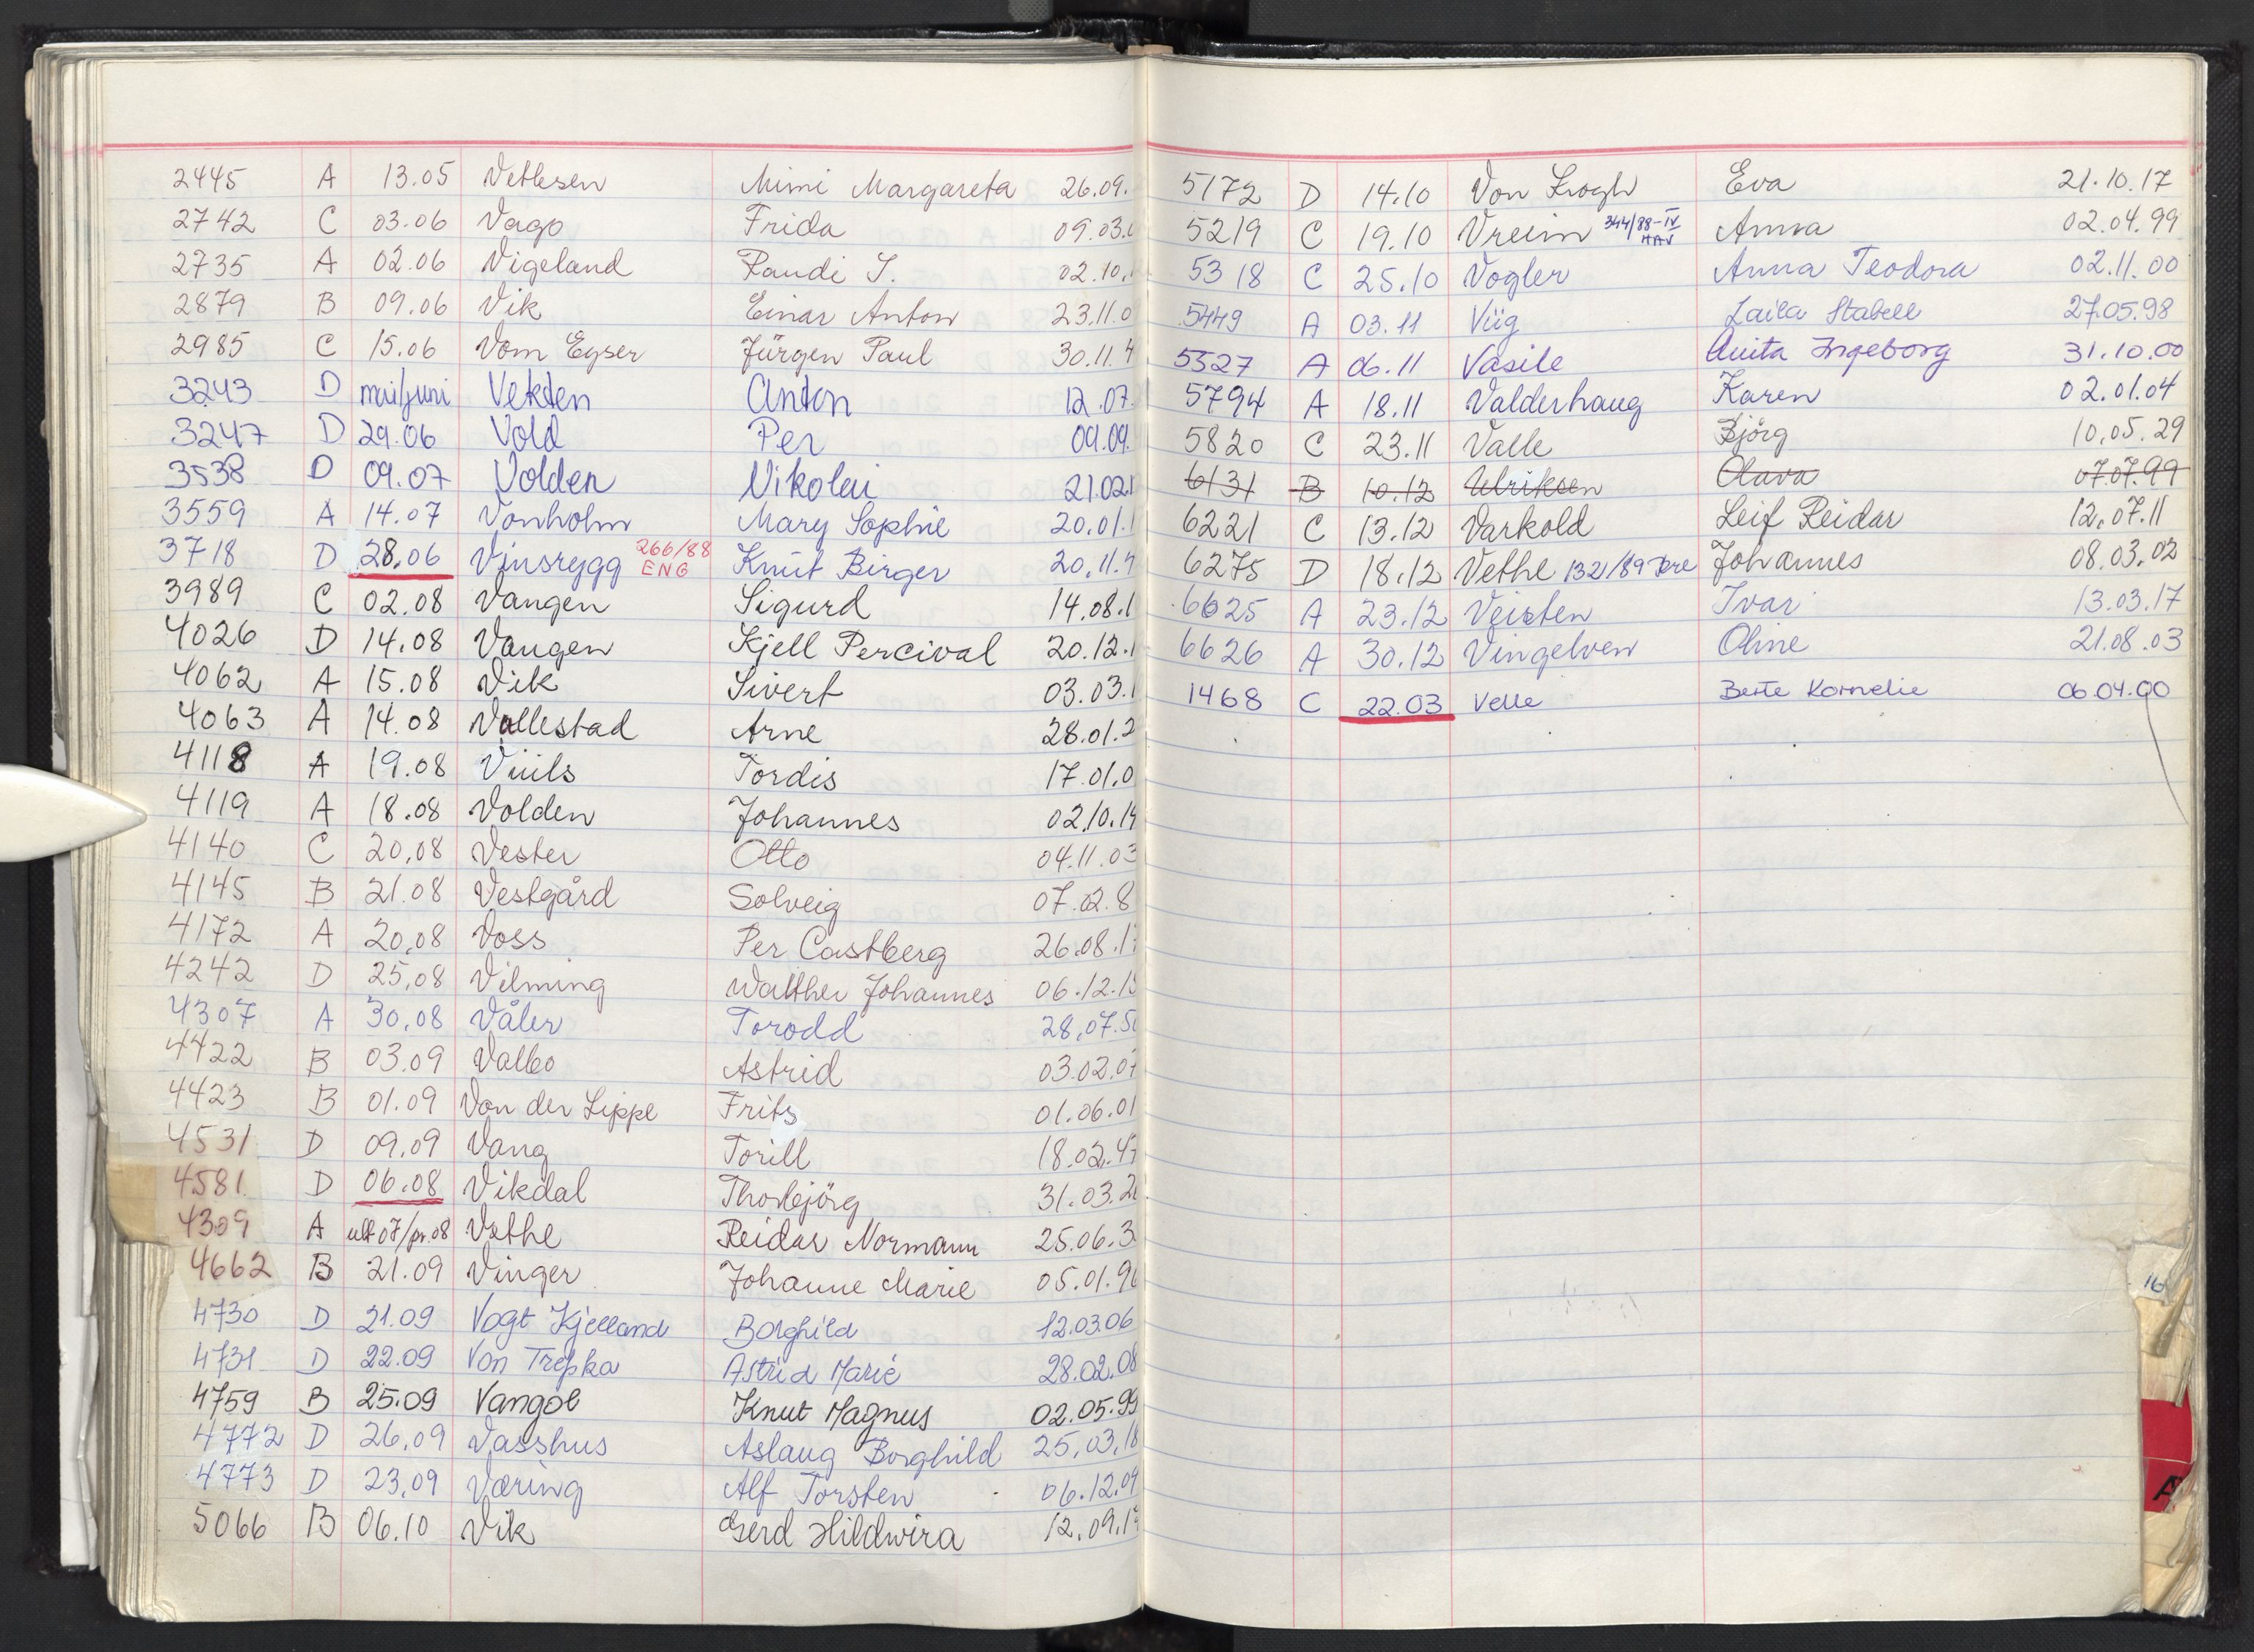 2445 A 13.05 Vetlesen Mimi Margareta 26.09.
2742 C 03.06 Vago Frida 09.03.0
2735 A 02.06 Vigeland Randi S. 02.10.
2879 B 09.06 Vik Einar Anton 23.11.0
2985 C 15.06 Vom Eyser Jürgen Paul 30.11.4
3243 D mai/juni Vekten Anton 12.07.
3247 D 29.06 Vold Per 09.09.
3538 D 09.07 Volden Nikolai 21.02.1
3559 A 14.07 Vonholm Mary Sophie 20.01.1
3718 D 28.06 Vinsrygg 266/88 ENG Knut Birger 20.11.4
3989 C 02.08 Vangen Sigurd 14.08.1
4026 D 14.08 Vangen Kjell Percival 20.12.1
4062 A 15.08 Vik Sivert 03.03.1
4063 A 14.08 Vallestad Arne 28.01.2
4118 A 19.08 Viuls Tordis 17.01.0
4119 A 18.08 Volden Johannes 02.10.14
4140 C 20.08 Vester Otto 04.11.03
4145 B 21.08 Vestgård Solveig 07.02.8
4172 A 20.08 Voss Per Castberg 26.08.17
4242 D 25.08 Vilming Walther Johannes 06.12.15
4307 A 30.08 Våler Torodd 28.07.50
4422 B 03.09 Valbo Astrid 03.02.07
4423 B 01.09 Von der Lippe Frits 01.06.01
4531 D 09.09 Vang Torill 18.02.47
4581 D 06.08 Vikdal Thorbjörg 31.03.20
4309 A ult 07/pr.08 Vethe Reidar Normann 25.06.3
4662 B 21.09 Vinger Johanne Marie 05.01.96
4730 D 21.09 Vogt Kjelland Borghild 12.03.06
4731 D 22.09 Von Trepka Astrid Marie 28.02.08
4759 B 25.09 Vangol Knut Magnus 02.05.99
4772 D 26.09 Vasshus Aslaug Borghild 25.03.18
4773 D 23.09 Væring Alf Torsten 06.12.09
5066 B 06.10 Vik Gerd Hildwira 12.09.1
5172 D 14.10 Von Krogh Eva 21.10.17
5219 C 19.10 Vreim 344/88-IV HAV Anna 02.04.99
5318 C 25.10 Vogler Anna Teodora 02.11.00
5449 A 03.11 Viig Laila Stabell 27.05.98
5527 A 06.11 Vasile Anita Ingeborg 31.10.00
5794 A 18.11 Valderhaug Karen 02.01.04
5820 C 23.11 Valle Bjørg 10.05.29
6131 B 10.12 Ulriksen Olava 07.07.99
6221 C 13.12 Varkold Leif Reidar 12.07.11
6275 D 18.12 Vethe 132/89 Johannes 08.03.02
6625 A 23.12 Veisten Ivar 13.03.17
6626 A 30.12 Vingelven Oline 21.08.03
1468 C 22.03 Velle Berte Kornelie 06.04.00
16